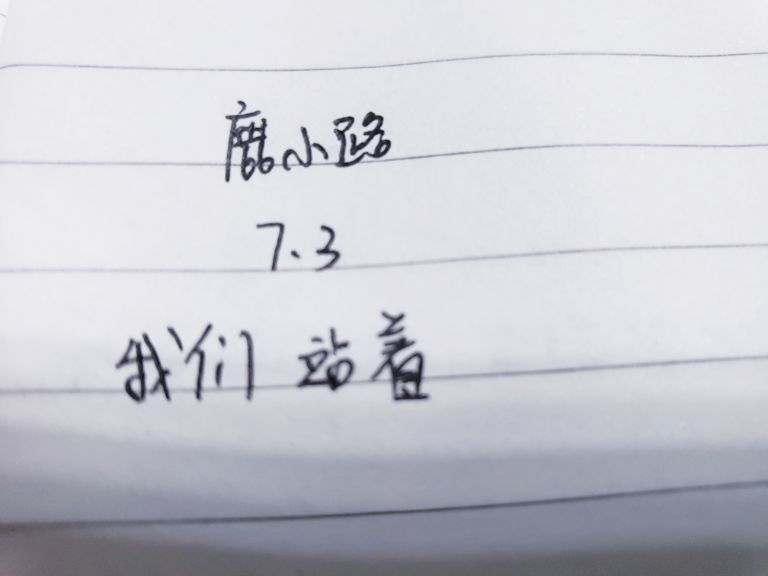 鹿小路
7.3
我们 站着